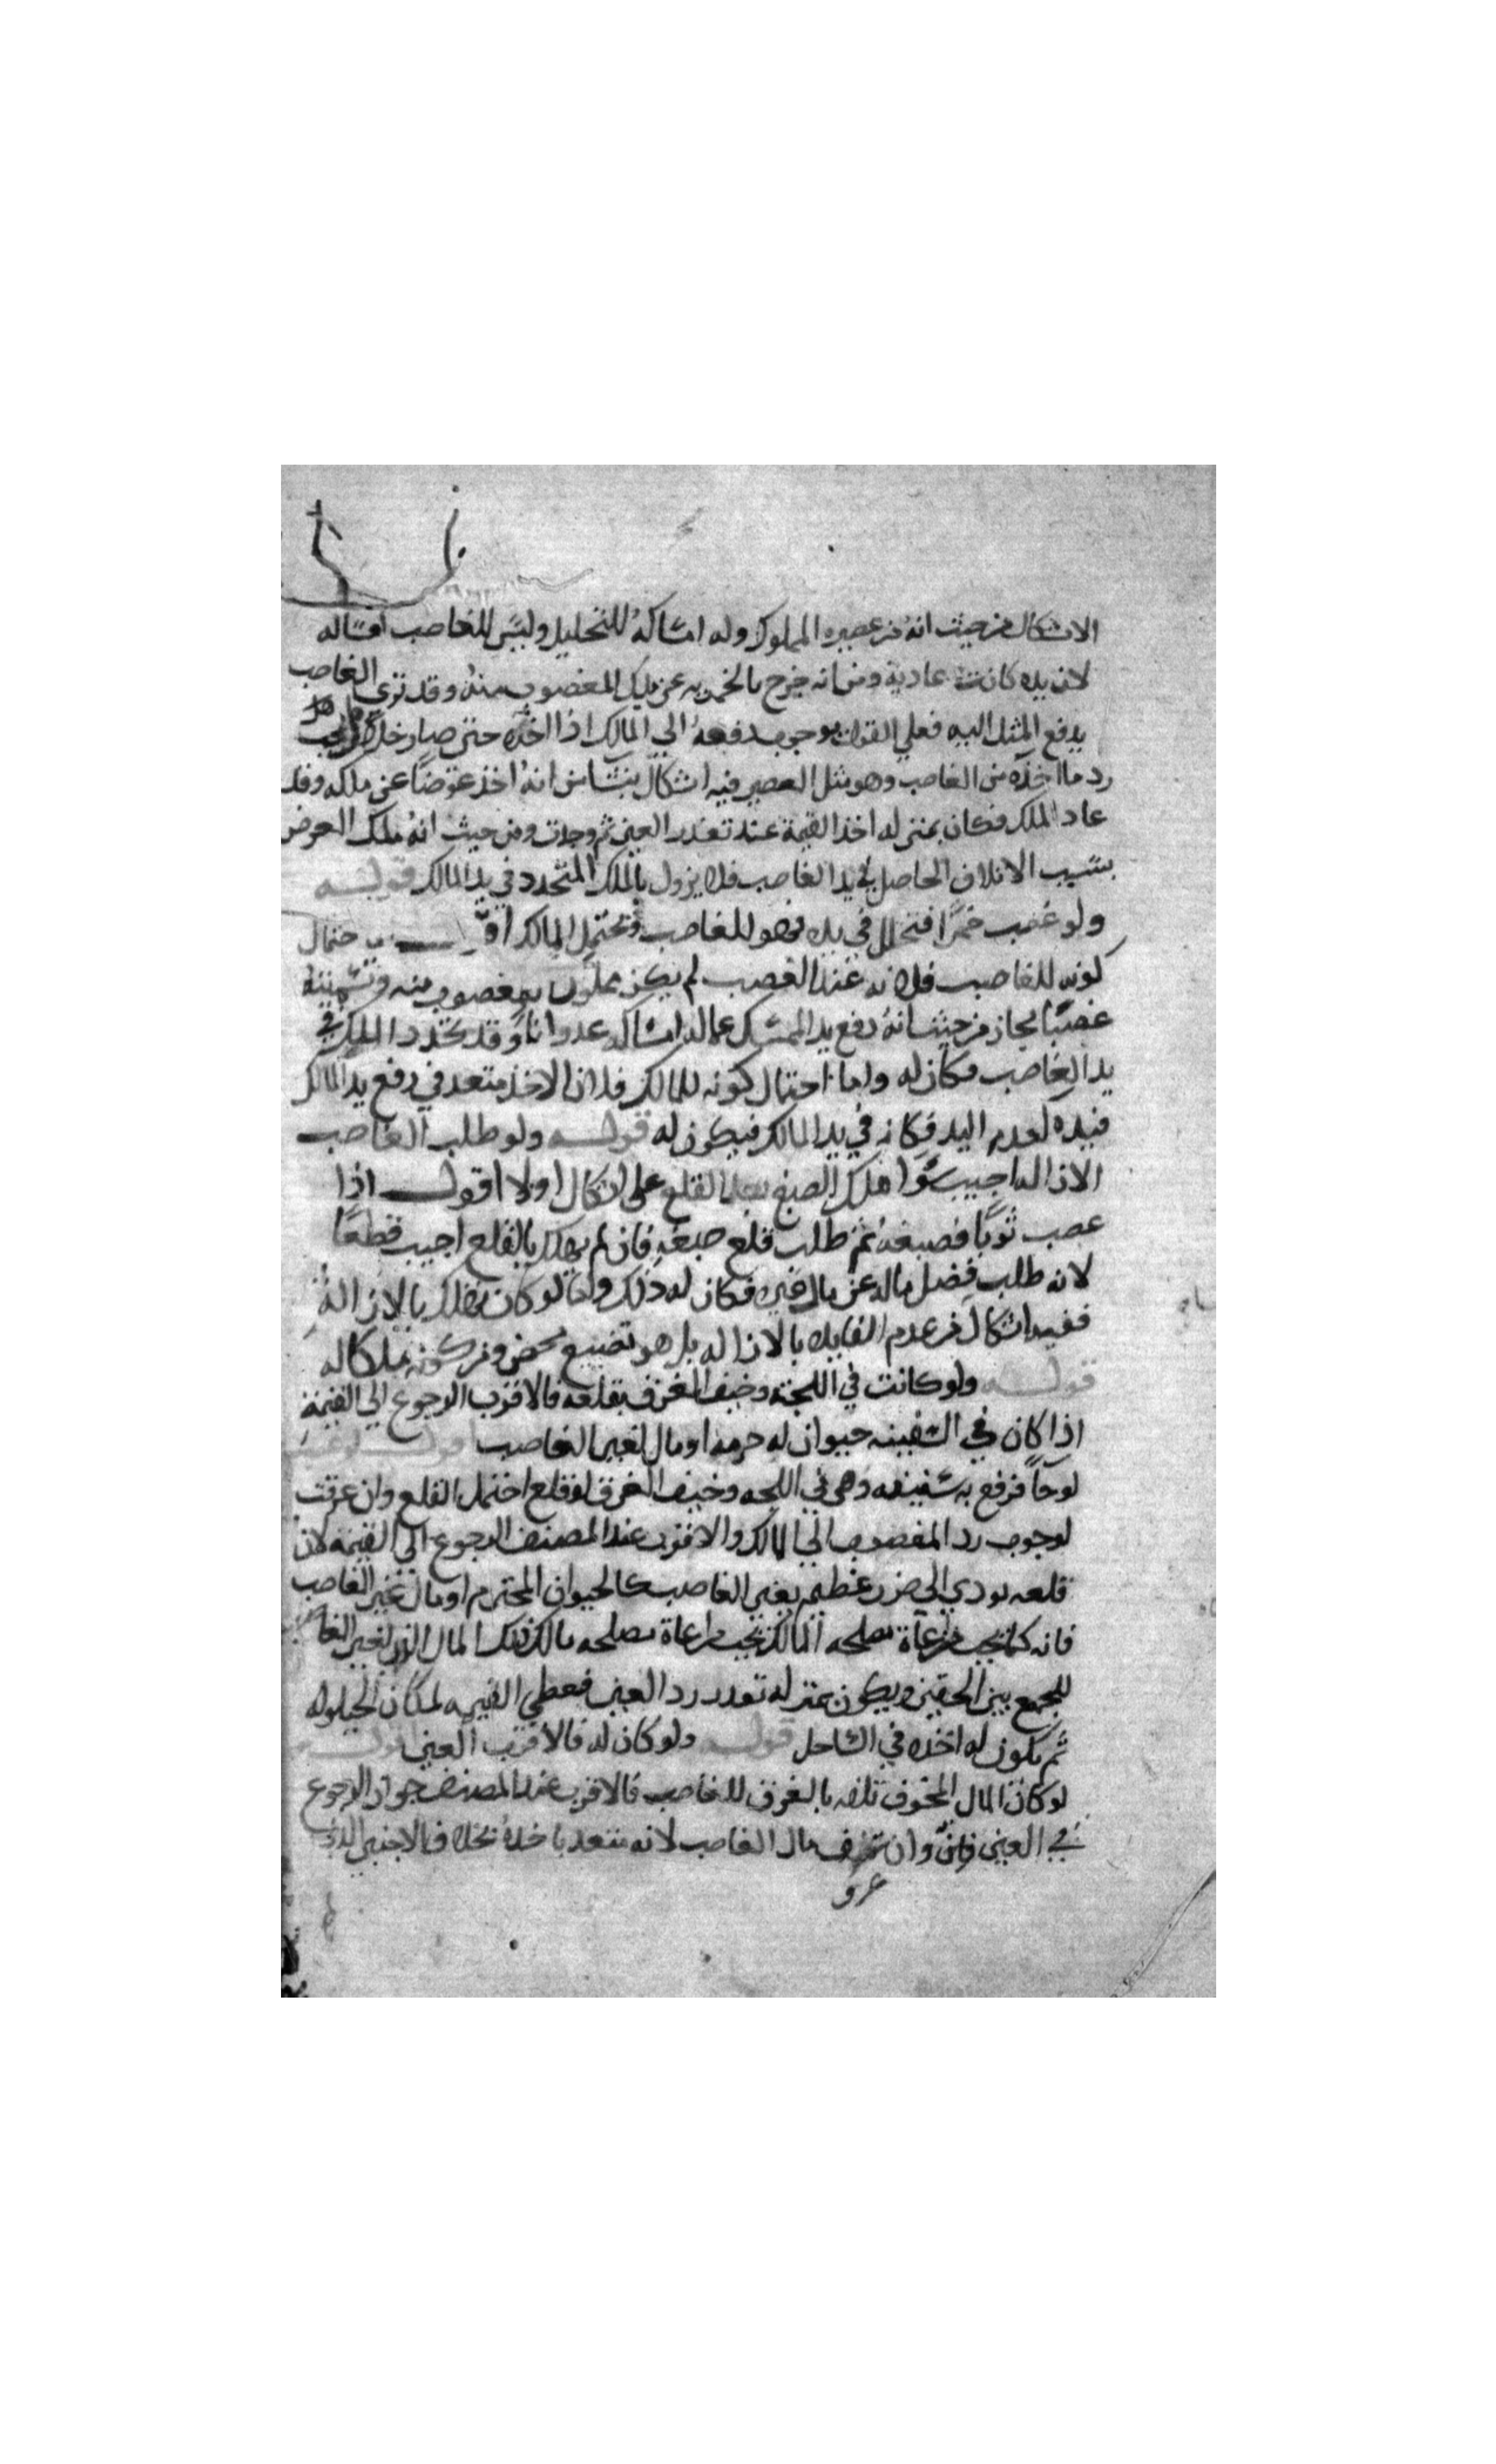 الاشكال من حيث انه من عصيره المملوك وله امساكه للتخليل وليس للغاصب امساله
لان يده كانت عادية ومن انه خرج بالخمرية عن ملك المغصوب منه وقد نوى الغاصب
يدفع المثل اليه فعلي القول بوجوب دفعه الي المالك اذا اخذه حتى صار خلا هل يجب
رد ما اخذه من الغاصب وهو مثل العصير فيه اشكال ينشا من انه اخذ عوضا عن ملكه وقد
عاد الملك فكان بمنزله اخذ القيمة عند تعذر العين ثم وجدت ومن حيث انه ملك العوض
بسبب الاتلاف الحاصل في يد الغاصب فلا يزول بالملك المتجدد في يد المالك قوله
ولو غصب خمرا فتخلل في يده فهو للغاصب ويحتمل المالك احتمال
كونه للغاصب فلانه عند الغصب لم يكن مملوكا لمغصوب منه وتسميته
غصبا مجاز من حيث انه دفع يد الممسك عما له امساكه عدوانا وقد تجدد الملك في
يد الغاصب فكان له واما احتمال كونه للمالك فلان الاخذ متعد في رفع يد المالك
فيده لعدم اليد فكانه في يد المالك فيكون له قوله ولو طلب الغاصب
الازاله اجيب سوا هلك الصبغ بعد القلع على اشكال او لا اقول اذا
غصب ثوبا فصبغه ثم طلب قلع صبغه فان لم يهلك بالقلع اجيب قطعا
لانه طلب فصل ماله عن مال غيره فكان له ذلك واما لو كان يهلك بالازالة
ففيه اشكال من عدم الفايده بالازاله بل هو تضييع محض ومن كونه ملكا له
قوله ولو كانت في اللجة وخيف الغرق بقلعه فالاقرب الرجوع الى القيمة
اذا كان في السفينه حيوان له حرمه او مال لغير الغاصب اقول لو غصب
لوحا فرقع به سفينته وهي في اللجه وخيف الغرق لو قلع احتمل القلع وان غرقت
لوجوب رد المغصوب الي المالك والاقرب عند المصنف الرجوع الي القيمه لان
قلعه يودي الي ضرر عظيم بغير الغاصب كالحيوان المحترم او مال غير الغاصب
فانه كما يجب مراعاة مصلحه المالك يجب مراعاة مصلحه مالك ذلك المال الذي لغير الغا
للجمع بين الحقين ويكون بمنزله تعذر رد العين فيعطي القيمه لمكان الحيلوله
ثم يكون له اخذه في الساحل قوله ولو كان له فالاقرب العين اقول
لو كان المال المخوف تلفه بالغرق للغاصب فالاقرب عند المصنف جواز الرجوع
في العين وان تلف مال الغاصب لانه متعد باخذه بخلاف الاجنبي الذي